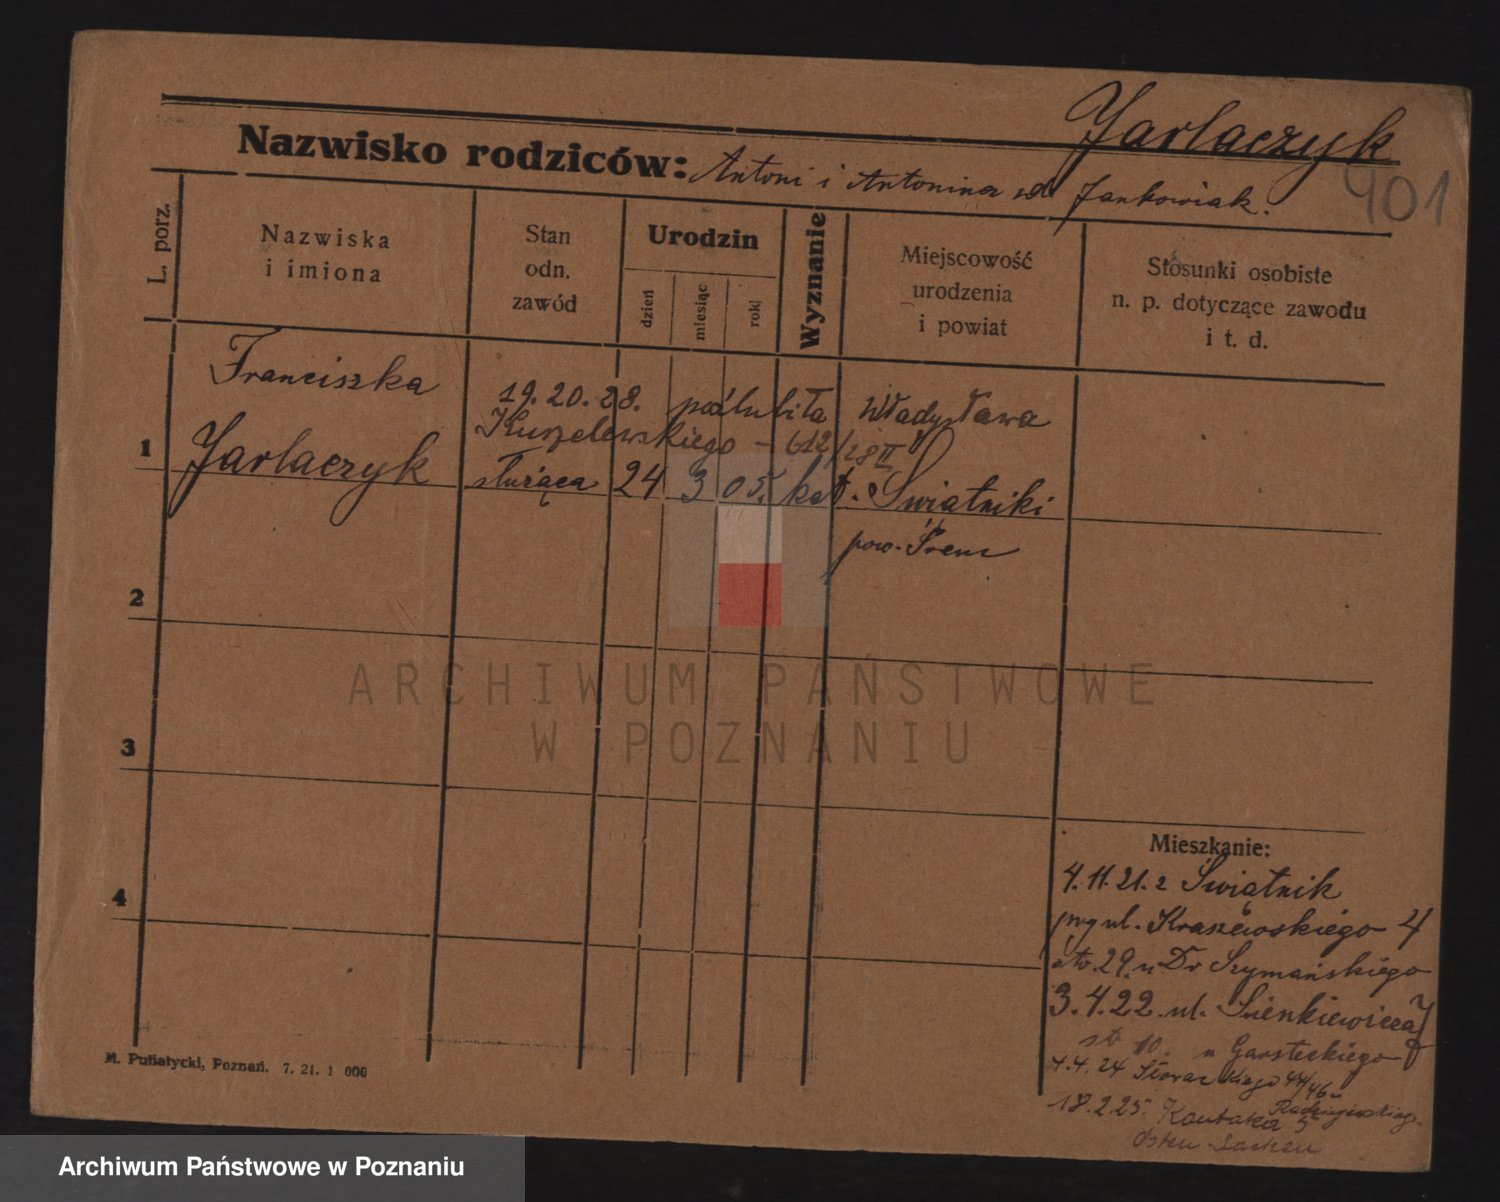 Jarlaczyk
Nazwisko rodziców: Antoni i Antonina zd. Jankowiak.
901
L. porz.
Nazwiska
i imiona
Stan
odn.
zawód
Urodzin
dzień
miesiąc
rok
Wyznanie
Miejscowość
urodzenia
i powiat
Stosunki osobiste
n. p. dotyczące zawodu
i t. d.
Franciszka
19. 20. 28. poślubiła Władysława
Kurzelewskiego - 612/28 II
1 Jarlaczyk służąca 24 3 05. kat. Świątniki
pow. Śrem
2
3
4
ARCHIWUM PAŃSTWOWE
W POZNANIU
Mieszkanie:
4. 11. 21. z Świątnik
ul. Kraszewskiego 4
29. u Dr Szymańskiego
3. 4. 22 ul. Sienkiewicza
10. u Garsteckiego
4. 4. 24 Słowackiego 44/46 u
18. 2. 25. Kantaka 5
Osten-Sacken
M. Putiatycki, Poznań. 7. 21. 1 000
Archiwum Państwowe w Poznaniu